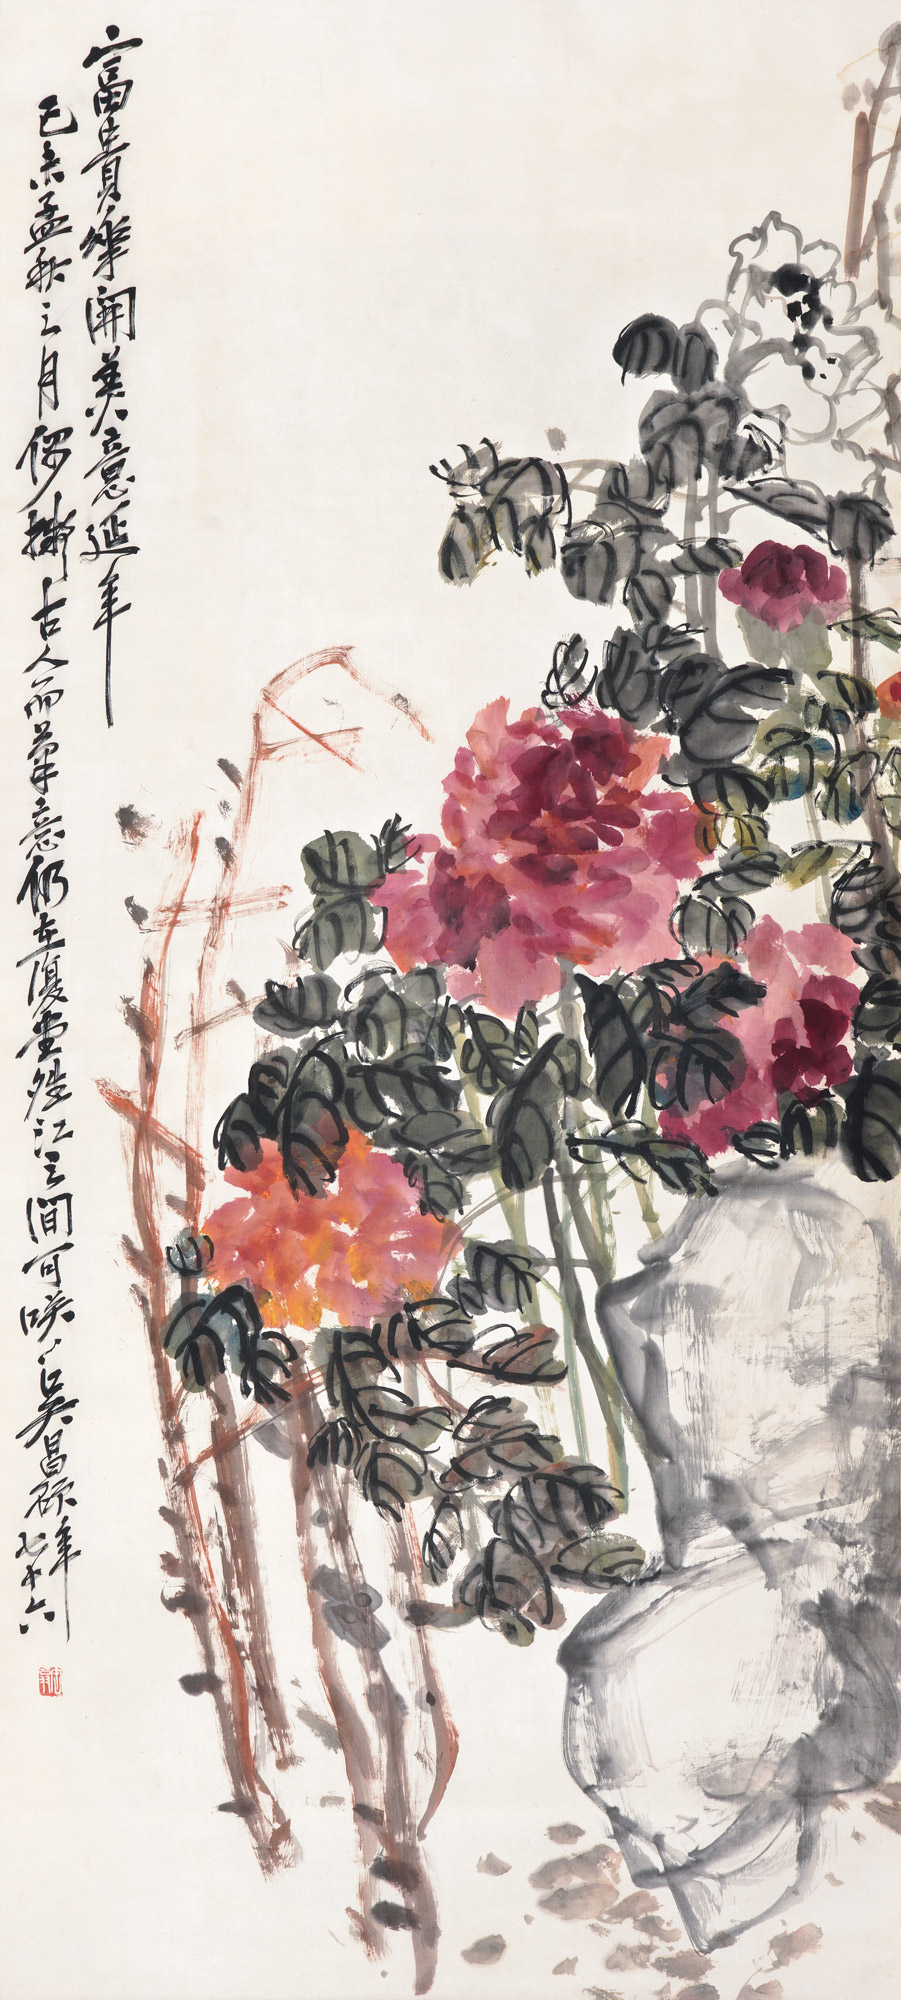 富貴華開美意延年
己未孟秋之月偶擬古人而筆意仍在復堂冉江之間可咲吳昌碩年七十六